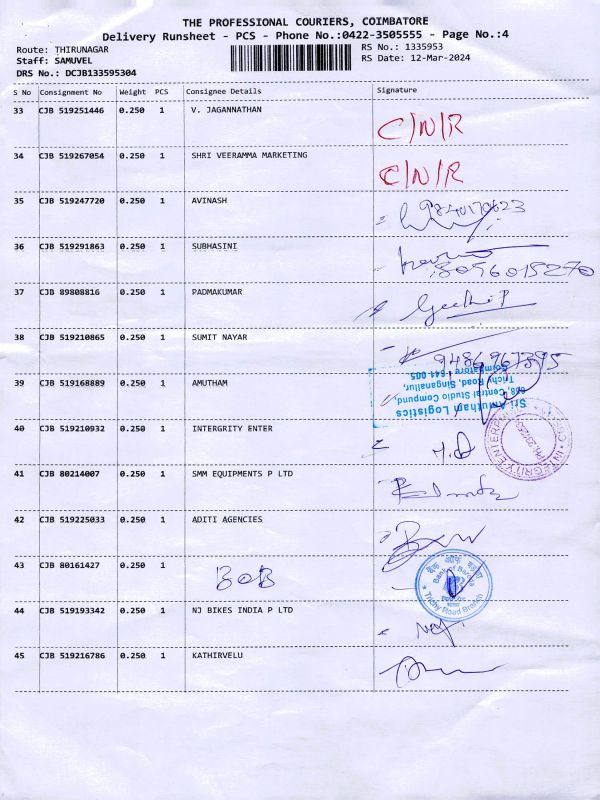 THE PROFESSIONAL COURIERS, COIMBATORE
Delivery Runsheet - PCS - Phone No.:0422-3505555 - Page No.:4
Route: THIRUNAGAR
RS No.: 1335953
Staff: SAMUVEL
RS Date: 12-Mar-2024
DRS No.: DCJB133595304
S No Consignment No Weight PCS Consignee Details Signature
33 CJB 519251446 0.250 1 V. JAGANNATHAN
C/N/R
34 CJB 519267054 0.250 1 SHRI VEERAMMA MARKETING
C/N/R
35 CJB 519247720 0.250 1 AVINASH
9840170623
36 CJB 519291863 0.250 1 SUBHASINI
8056015270
37 CJB 89808816 0.250 1 PADMAKUMAR
Geethi P
38 CJB 519210865 0.250 1 SUMIT NAYAR
9486967395
39 CJB 519168889 0.250 1 AMUTHAM
Sri Amutham Logistics
628, Central Studio Compund,
Trichy Road, Singanallur,
Coimbatore - 641 005.
40 CJB 519210932 0.250 1 INTERGRITY ENTER
41 CJB 80214007 0.250 1 SMM EQUIPMENTS P LTD
42 CJB 519225033 0.250 1 ADITI AGENCIES
43 CJB 80161427 0.250 1 BOB
बैंक ऑफ़ बड़ौदा
Bank of Baroda
Trichy Road Branch
44 CJB 519193342 0.250 1 NJ BIKES INDIA P LTD
45 CJB 519216786 0.250 1 KATHIRVELU